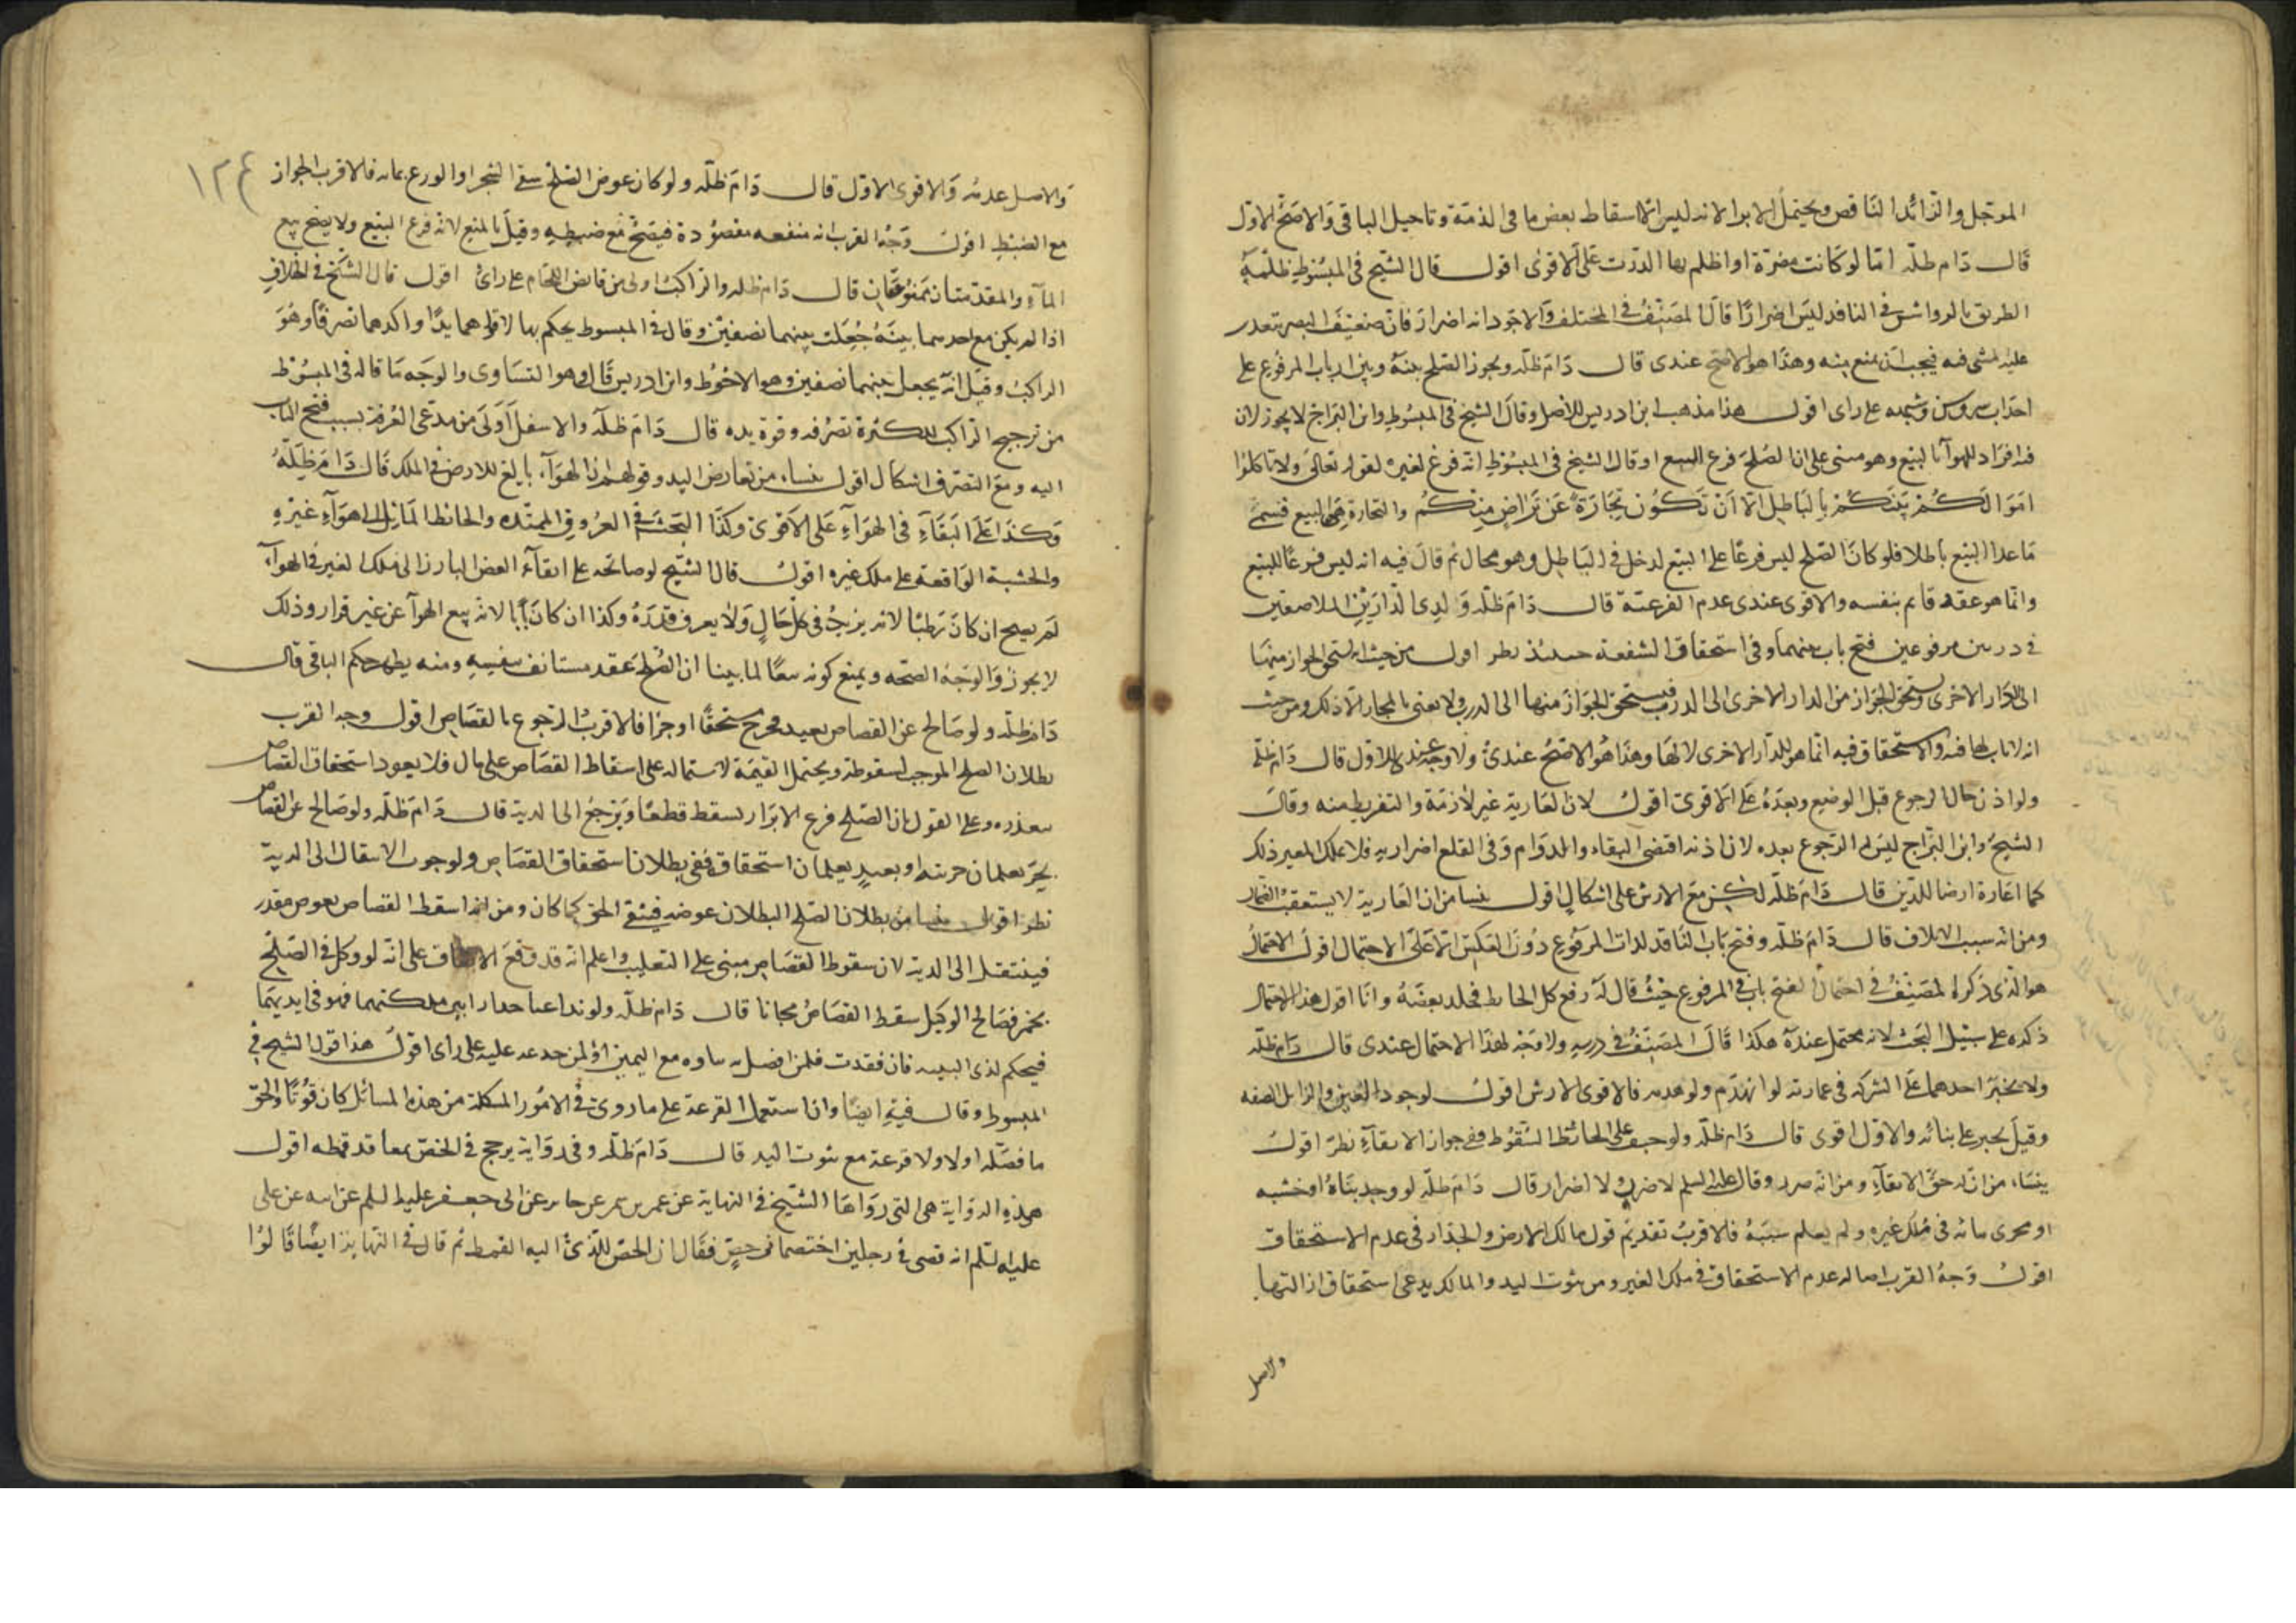 الموجل والزائد الناقص ويحتمل الابرا لانه ليس الا اسقاط بعض ما فى الذمة وتاجيل الباقى والاصح الاول
قال دام ظله اما لو كانت مضرة او اظلم بها الدرب على الاقوى اقول قال الشيخ فى المبسوط ظلمة
الطريق بالرواشن فى النافذ ليس اضرارا قال المصنف فى المختلف والاجود انه اضرار فان ضعيف البصر يتعذر
عليه المشى فيه فيجب ان يمنع منه وهذا هو الاصح عندى قال دام ظله ويجوز الصلح بينه وبين ارباب المرفوع على
احداث روشن وشبهه على راى اقول هذا مذهب ابن ادريس للاصل وقال الشيخ فى المبسوط وابن البراج لا يجوز لان
فيه افراد للهوآ بالبيع وهو مبنى على ان الصلح فرع البيع او قال الشيخ فى المبسوط انه فرع لغيره لقوله تعالى ولا تاكلوا
اموالكم بينكم بالباطل الا ان تكون تجارة عن تراض منكم والتجارة هى البيع فسمى
ما عدا البيع باطلا فلو كان الصلح ليس فرعا على البيع لدخل فى الباطل وهو محال ثم قال فيه انه ليس فرعا للبيع
وانما هو عقد قايم بنفسه والاقوى عندى عدم الفرعية قال دام ظله ولذى الدارين المتلاصقين
فى دربين مرفوعين فتح باب بينهما وفى استحقاق الشفعة حينئذ نظر اقول من حيث انه استحق الجواز منها
الى الدار الاخرى ويستحق الجواز من الدار الاخرى الى الدرب فيستحق الجواز منها الى الدرب ولا يعنى بالمجاز الا ذلك ومن حيث
انه لا باب لها فيه والاستحقاق فيه انما هو للدار الاخرى لا لها وهذا هو الاصح عندى ولا وجه عندى للاول قال دام ظله
ولو اذن حال الرجوع قبل الوضع وبعده على الاقوى اقول لان العارية غير لازمة والتفريط منه وقال
الشيخ وابن البراج ليس له الرجوع بعده لان اذنه اقتضى البقاء والدوام وفى القلع اضرار به فلا يملك المعير ذلك
كما اعارة ارضا للدفن قال دام ظله لكن مع الارش على اشكال اقول ينشا من ان العارية لا يستعقب الضمان
ومن انه سبب الاتلاف قال دام ظله وفتح باب النافذ لذات المرفوع دون العكس الا على الاحتمال اقول الاحتمال
هو الذى ذكره المصنف فى احتمال الفتح باب فى المرفوع حيث قال له رفع كل الحائط فخلد بعضه وانا اقول هذا الاحتمال
ذكره على سبيل البحث لانه محتمل عنده هكذا قال المصنف فى درسه ولا وجه لهذا الاحتمال عندى قال دام ظله
ولا يجبر احدهما على الشركة فى عمارته لو انهدم ولو هدمه فالاقوى الارش اقول لوجود العين والزايل الصفه
وقيل يجبر على بنائه والاول اقوى قال دام ظله ولو خيف على الحائط السقوط ففى جواز الابقآء نظر اقول
ينشاء من ان له حق الابقآء ومن انه ضرر وقال عليه السلم لا ضرر ولا اضرار قال دام ظله لو وجد بناه او خشبه
او مجرى مائه فى ملك غيره ولم يعلم سببه فالاقرب تقديم قول مالك الارض والجدار فى عدم الاستحقاق
اقول وجه القرب اصالة عدم الاستحقاق فى ملك الغير ومن ثبوت اليد والمالك يدعى استحقاق ازالتها
والاصل
١٢٤
والاصل عدمه والاقوى الاول قال دام ظله ولو كان عوض الصلح سقى الشجر او الزرع بمائه فالاقرب الجواز
مع الضبط اقول وجه القرب انه منفعه مقصودة فيصح مع ضبطه وقيل بالمنع لانه فرع البيع ولا يصح بيع
المآء والمقدمتان ممنوعتان قال دام ظله والراكب اولى من قابض اللجام على راى اقول قال الشيخ فى الخلاف
اذا لم يكن مع احدهما بينة جعلت بينهما نصفين وقال فى المبسوط يحكم بها لاقواهما يدا واكدهما تصرفا وهو
الراكب وقيل انه يجعل بينهما نصفين وهو الاحوط وابن ادريس قال وهو التساوى والوجه ما قاله فى المبسوط
من ترجيح الراكب لكثرة تصرفه وقوة يده قال دام ظله والاسفل اولى من مدعى الغرفة بسبب فتح الباب
اليه ومع التصرف اشكال اقول ينشاء من تعارض اليد وقولهم ان الهوآء تابع للارض فى الملك قال دام ظله
وكذا على البقآء فى الهوآء على الاقوى وكذا البحث فى العروق الممتده والحائط المائل الى هوآء غيره
والخشبة الواقعة على ملك غيره اقول قال الشيخ لو صالحه على ابقآء الغصن البارز الى ملك الغير فى الهوآء
لم يصح ان كان رطبا لانه يزيد فى كل حال ولا يعرف قدره وكذا ان كان يابسا لانه بيع الهوآ عن غير قرار وذلك
لا يجوز والوجه الصحه ويمنع كونه بيعا لما بينا ان الصلح عقد مستانف بنفسه ومنه يظهر حكم الباقى قال
دام ظله ولو صالح عن القصاص بعبد فخرج مستحقا او حرا فالاقرب الرجوع بالقصاص اقول وجه القرب
بطلان الصلح الموجب لسقوطه ويحتمل القيمة لاشتماله على اسقاط القصاص على مال فلا يعود استحقاق القصاص
بتعذره وعلى القول بان الصلح فرع الابراء يسقط قطعا ويرجع الى الدية قال دام ظله ولو صالح عن القصاص
بحر يعلمان حريته او بعبد يعلمان استحقاقه ففى بطلان استحقاق القصاص ولوجوب الانتقال الى الدية
نظر اقول ينشا من بطلان الصلح البطلان عوضه فيبقى الحق كما كان ومن انه اسقط القصاص بعوض مقدر
فينتقل الى الدية لان سقوط القصاص مبنى على التغليب واعلم انه قد وقع الاتفاق على انه لو وكل فى الصلح
بخمر فصالح الوكيل سقط القصاص مجانا قال دام ظله ولو تداعيا جدارا بين ملكيهما فهو فى ايديهما
فيحكم لذى البينه فان فقدت فلمن اتصل بناوه مع اليمين او لمن جذعه عليه على راى اقول هذا قول الشيخ فى
المبسوط وقال فيه ايضا وان استعمل القرعة على ما روى فى الامور المشكلة من هذه المسائل كان قويا والحق
ما فصله اولا ولا قرعة مع ثبوت اليد قال دام ظله وفى رواية يرجح فى الخص بمعاقد قمطه اقول
هذه الرواية هى التى رواها الشيخ فى النهاية عن عمر بن شمر عن جابر عن ابى جعفر عليه السلم عن ابيه عن على
عليه السلم انه قضى فى رجلين اختصما فى خص فقال ان الخص للذى اليه القمط ثم قال فى النهاية ايضا قالوا